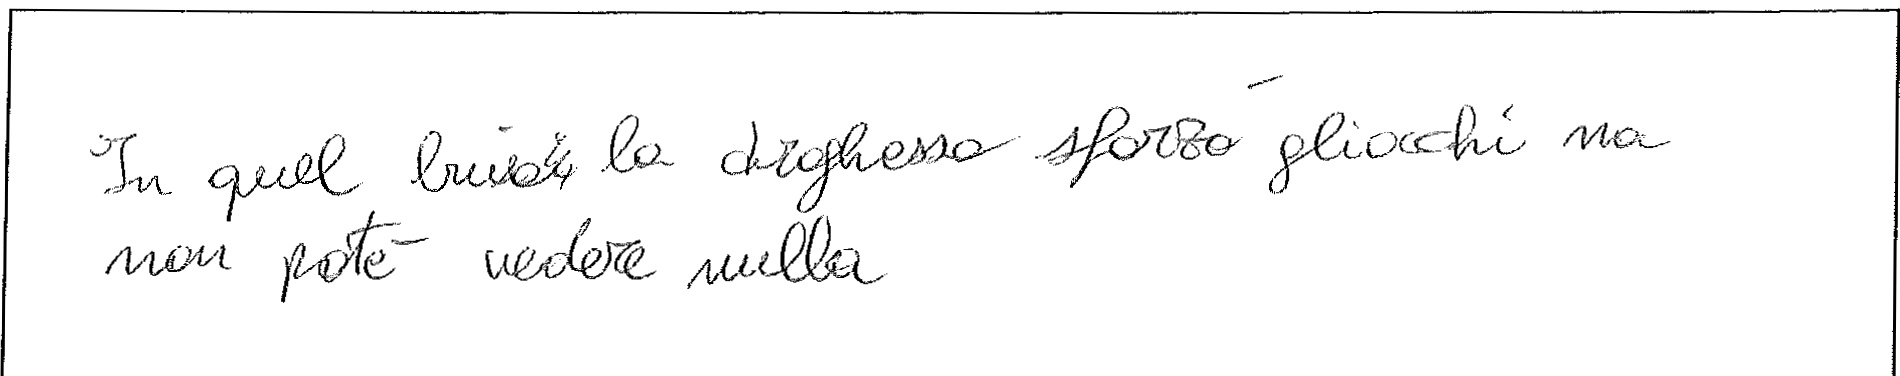 In quel buio la draghessa sforzò gliocchi ma
non poté vedere nulla